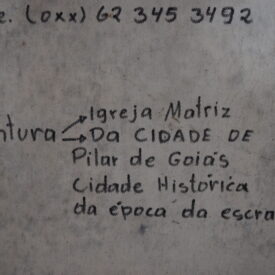 e. (oxx) 62 345 3492
ntura Igreja Matriz
Da CIDADE DE
Pilar de Goiás
Cidade Histórica
da época da escra